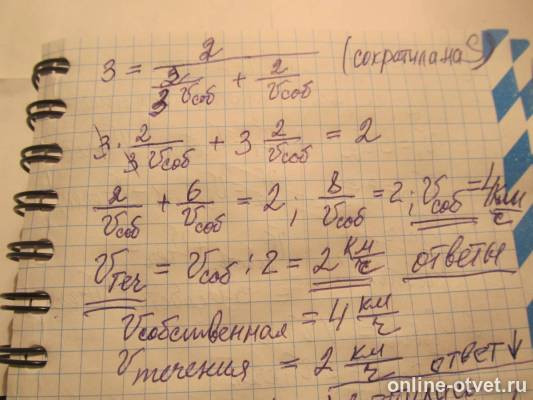 3 = 2 / (2/3 Vсоб + 2/Vсоб) (сократила на S)
3 · 2/3 Vсоб + 3 2/Vсоб = 2
2/Vсоб + 6/Vсоб = 2; 8/Vсоб = 2; Vсоб = 4 км/ч
Vтеч = Vсоб : 2 = 2 км/ч ответы
Vсобственная = 4 км/ч
Vтечения = 2 км/ч ответ ↓
online-otvet.ru